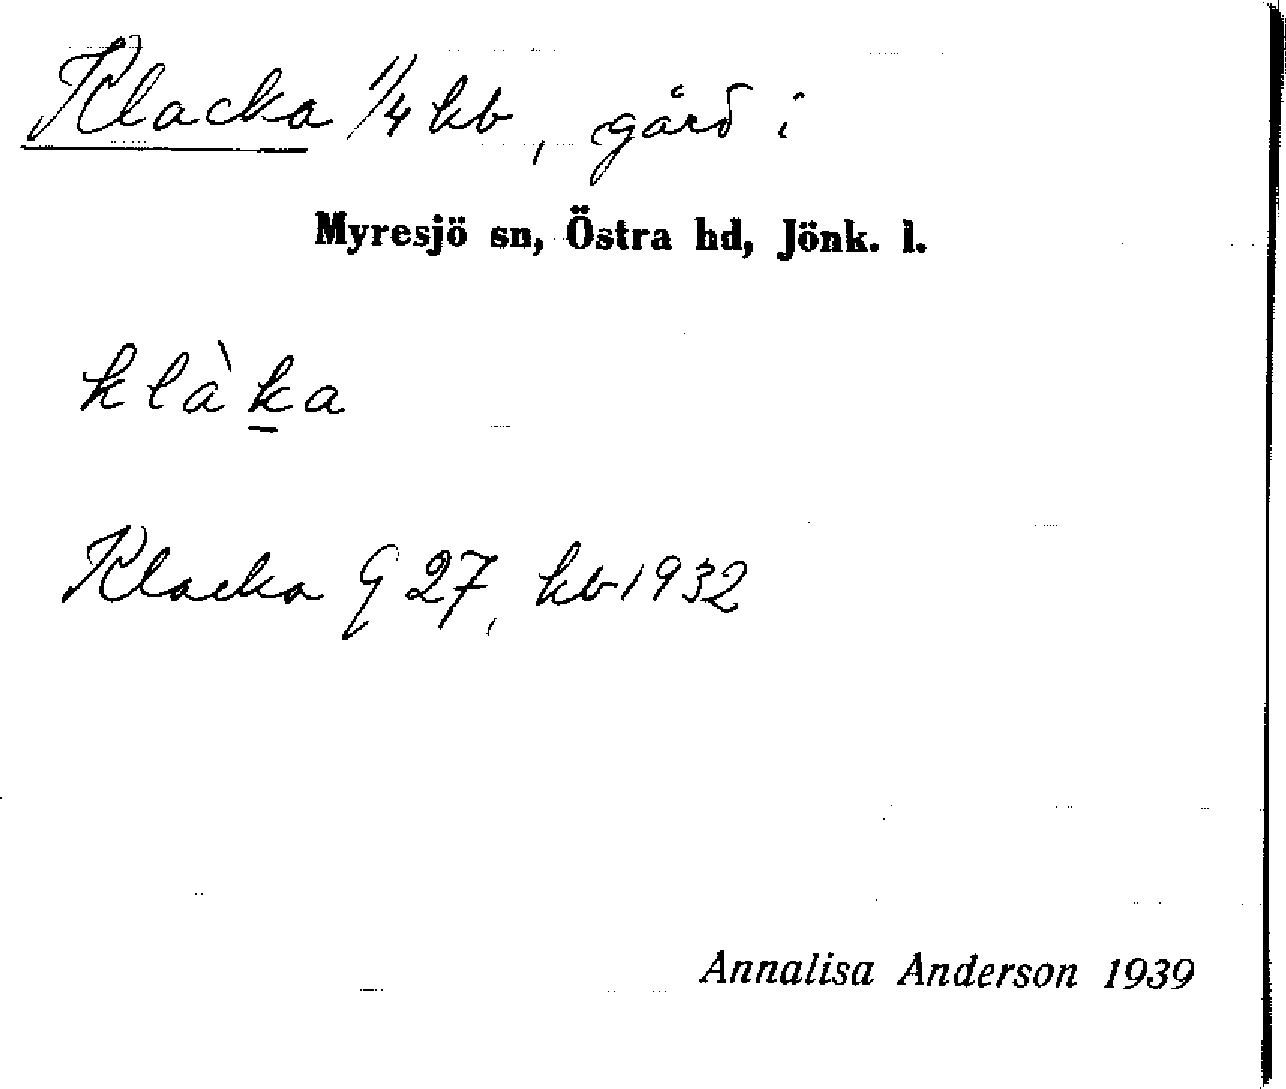 Klacka 1/4 kb, gård i
Myresjö sn, Östra hd, Jönk. l.
klàka
Klacka G 27, kb 1932
Annalisa Anderson 1939